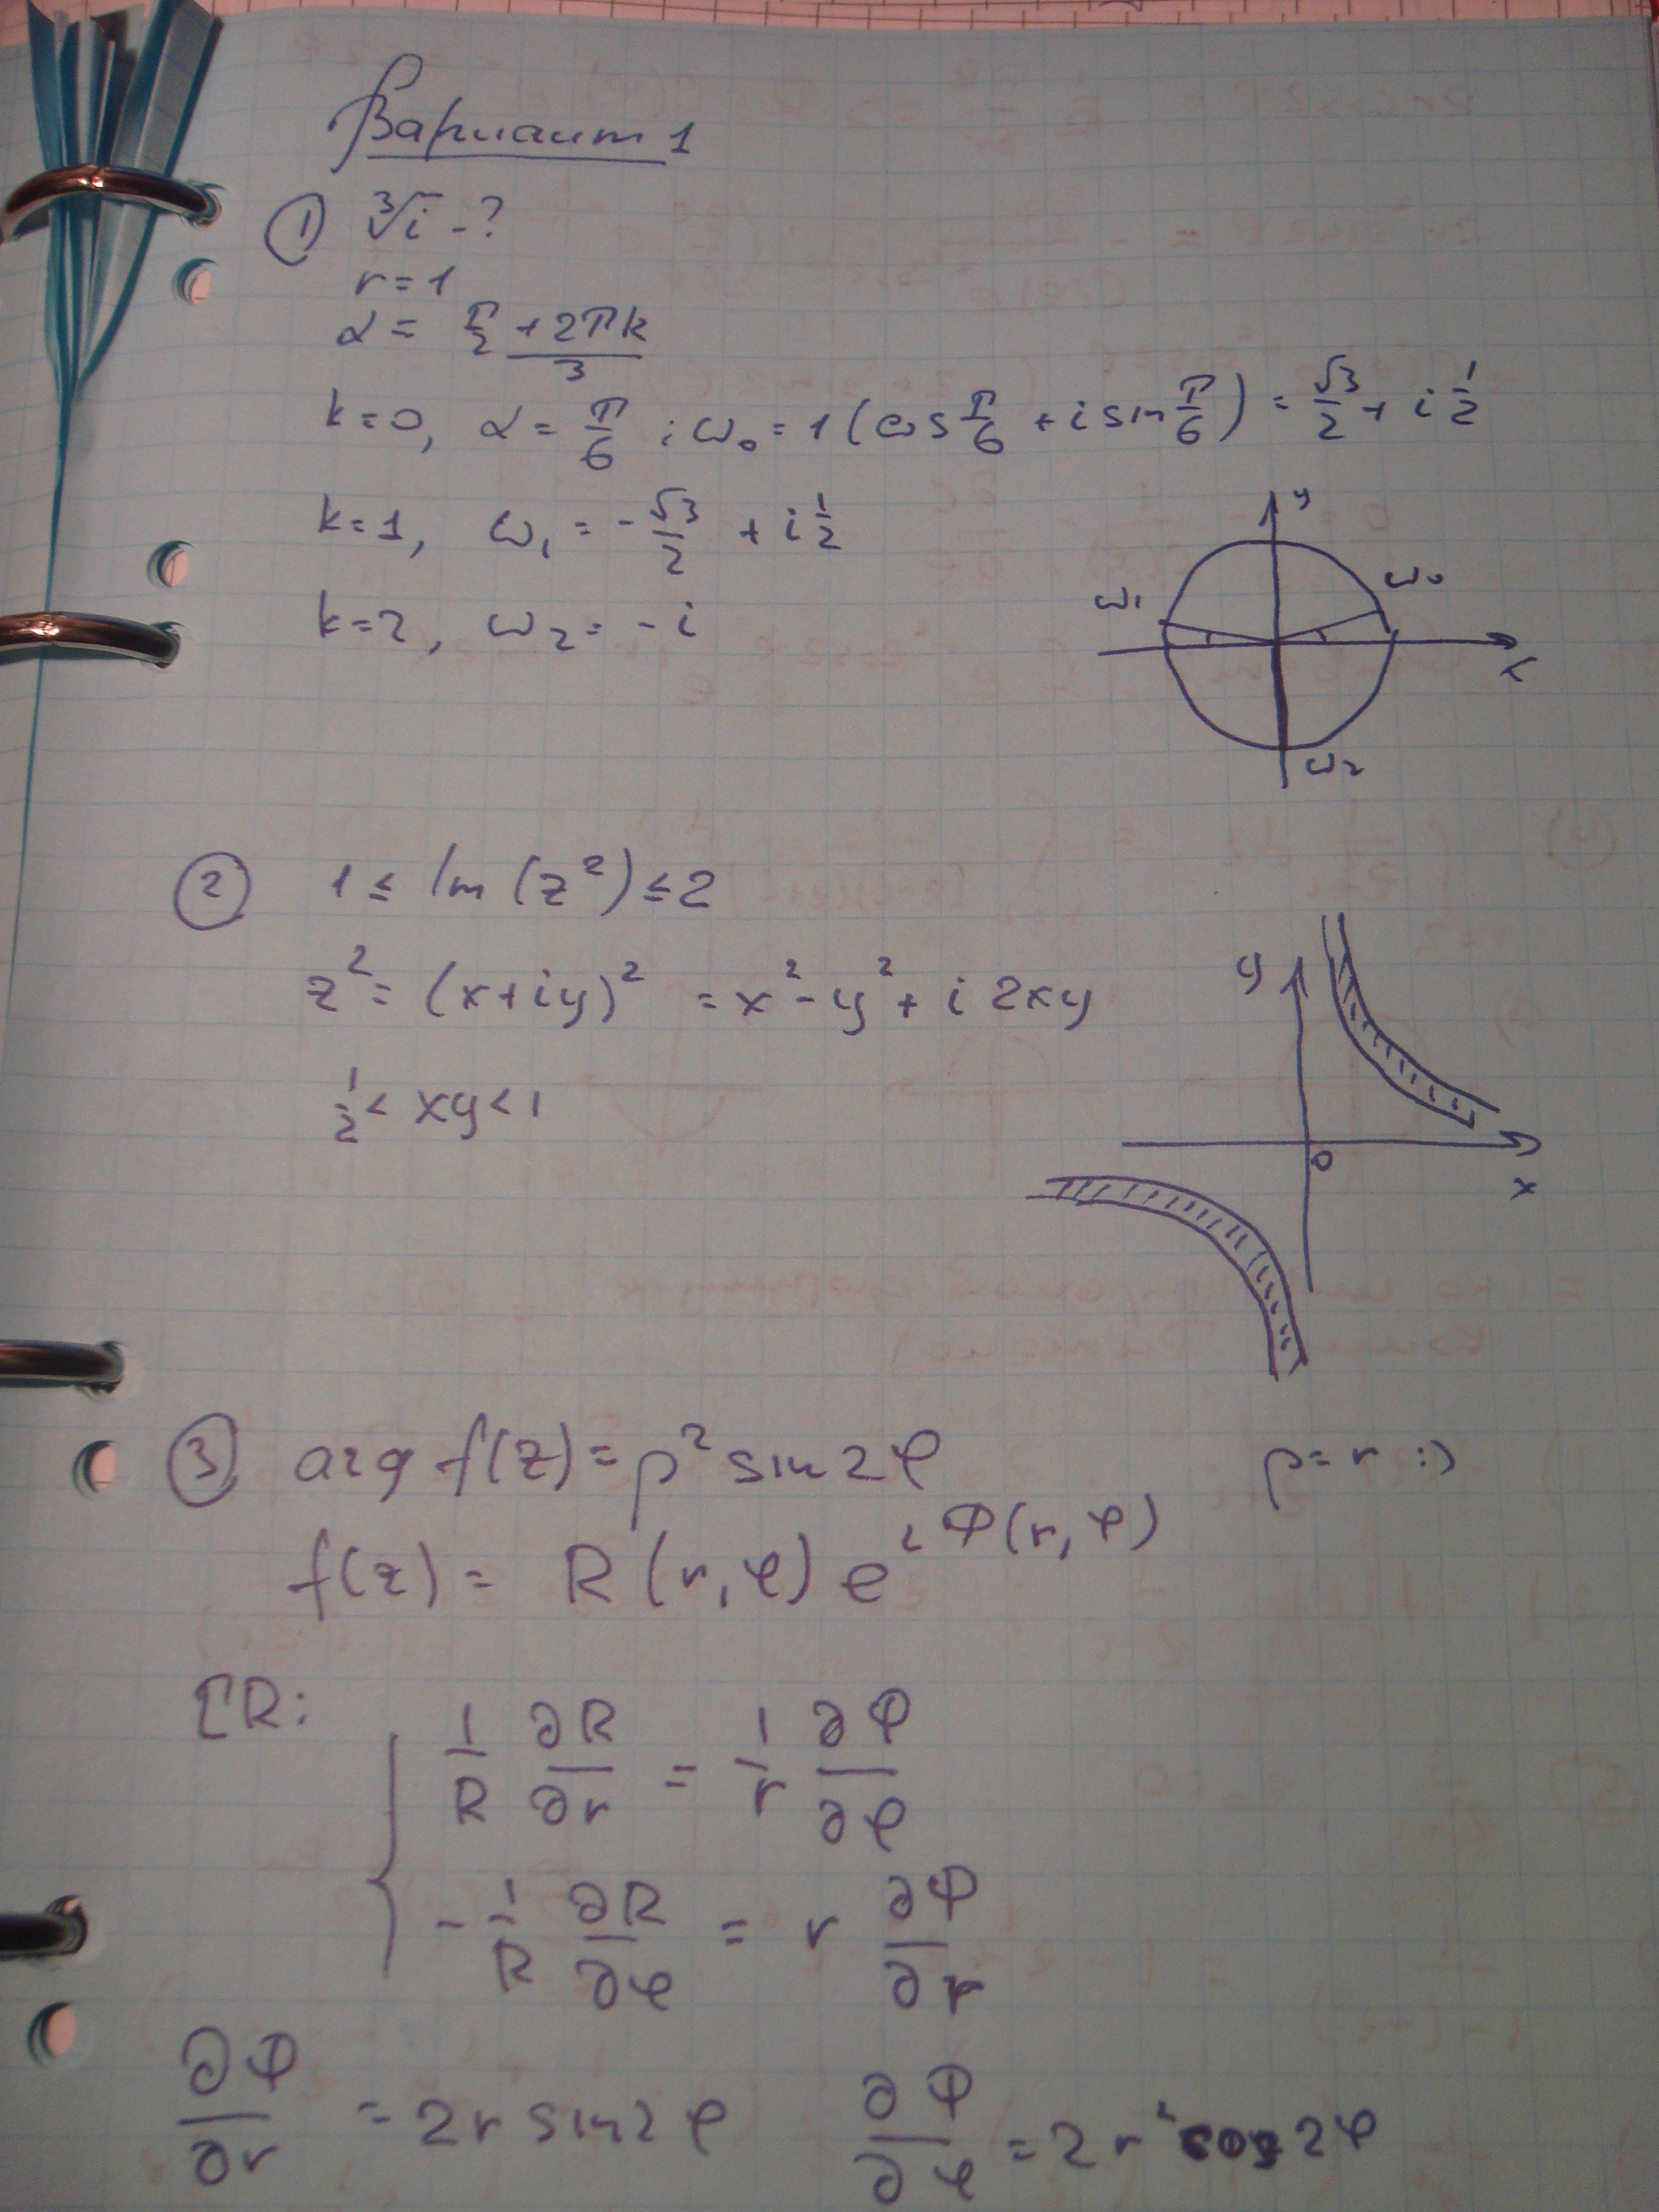 Вариант 1
① ∛i - ?
r = 1
α = π/2 + 2πk / 3
k=0, α = π/6 ; ω₀ = 1(cos π/6 + i sin π/6) = √3/2 + i 1/2
k=1, ω₁ = -√3/2 + i 1/2
k=2, ω₂ = -i
y
ω₀
ω₁
x
ω₂
② 1 ≤ Im (z²) ≤ 2
z² = (x+iy)² = x² - y² + i 2xy
1/2 < xy < 1
y
0
x
③ arg f(z) = ρ² sin 2φ
ρ = r :)
f(z) = R (r, φ) e^{i Φ(r, φ)}
CR:
1/R ∂R/∂r = 1/r ∂Φ/∂φ
- 1/R ∂R/∂φ = r ∂Φ/∂r
∂Φ/∂r = 2r sin 2φ ∂Φ/∂φ = 2r² cos 2φ